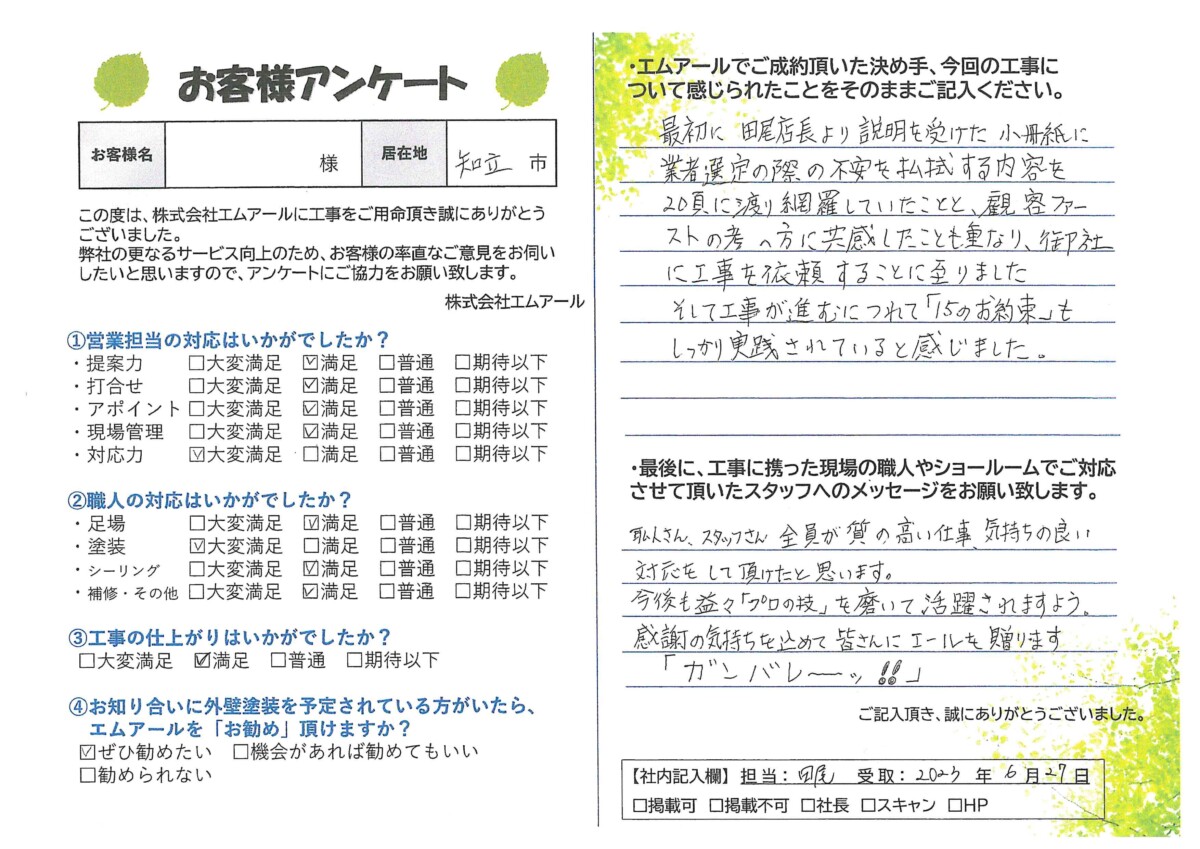 お客様アンケート
お客様名 様 居在地 知立 市
この度は、株式会社エムアールに工事をご用命頂き誠にありがとう
ございました。
弊社の更なるサービス向上のため、お客様の率直なご意見をお伺い
したいと思いますので、アンケートにご協力をお願い致します。
株式会社エムアール
①営業担当の対応はいかがでしたか？
・提案力 □大変満足 ☑満足 □普通 □期待以下
・打合せ □大変満足 ☑満足 □普通 □期待以下
・アポイント □大変満足 ☑満足 □普通 □期待以下
・現場管理 □大変満足 ☑満足 □普通 □期待以下
・対応力 ☑大変満足 □満足 □普通 □期待以下
②職人の対応はいかがでしたか？
・足場 □大変満足 ☑満足 □普通 □期待以下
・塗装 ☑大変満足 □満足 □普通 □期待以下
・シーリング □大変満足 ☑満足 □普通 □期待以下
・補修・その他 □大変満足 ☑満足 □普通 □期待以下
③工事の仕上がりはいかがでしたか？
□大変満足 ☑満足 □普通 □期待以下
④お知り合いに外壁塗装を予定されている方がいたら、
エムアールを「お勧め」頂けますか？
☑ぜひ勧めたい □機会があれば勧めてもいい
□勧められない
・エムアールでご成約頂いた決め手、今回の工事に
ついて感じられたことをそのままご記入ください。
最初に 田尾店長より説明を受けた 小冊紙に
業者選定の際の不安を払拭する内容を
20頁に渡り網羅していたことと、観客ファー
ストの考へ方に共感したことも重なり、御社
に工事を依頼することに至りました
そして工事が進むにつれて「15のお約束」も
しっかり実践されていると感じました。
・最後に、工事に携った現場の職人やショールームでご対応
させて頂いたスタッフへのメッセージをお願い致します。
職人さん、スタッフさん 全員が質の高い仕事、気持ちの良い
対応をして頂けたと思います。
今後も益々「プロの技」を磨いて活躍されますよう。
感謝の気持ちを込めて皆さんにエールを贈ります
「ガンバレーーッ!!」
ご記入頂き、誠にありがとうございました。
【社内記入欄】担当：田尾 受取：2023 年 6 月 27 日
□掲載可 □掲載不可 □社長 □スキャン □HP